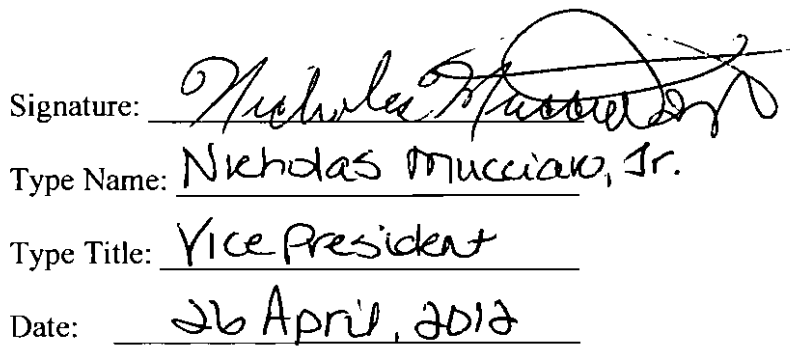 Signature: Nicholas Mucciaro Jr
Type Name: Nicholas Mucciaro, Jr.
Type Title: Vice President
Date: 26 April, 2012